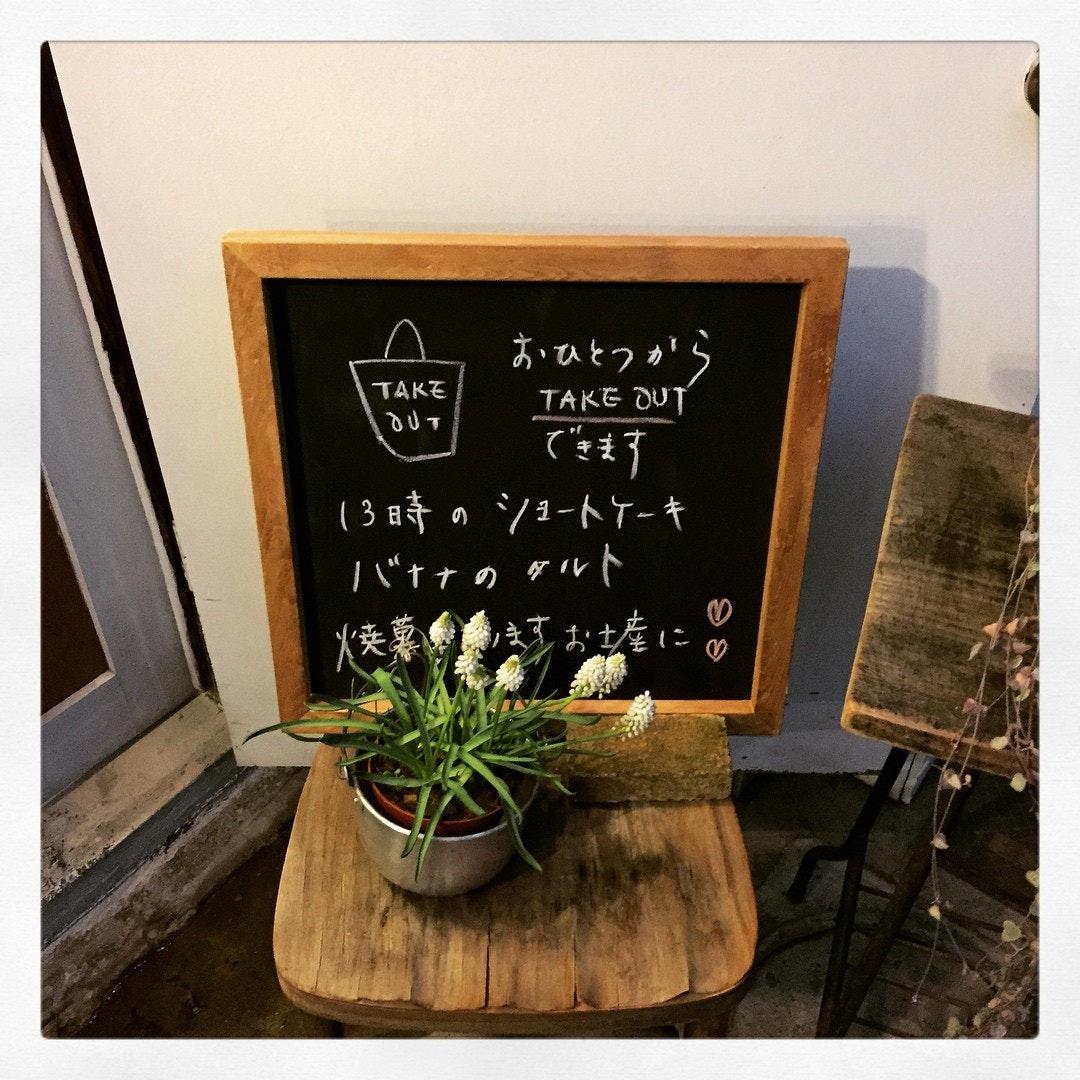 TAKE
OUT
おひとつから
TAKE OUT
できます
13時のショートケーキ
バナナのタルト
焼菓 います お土産に